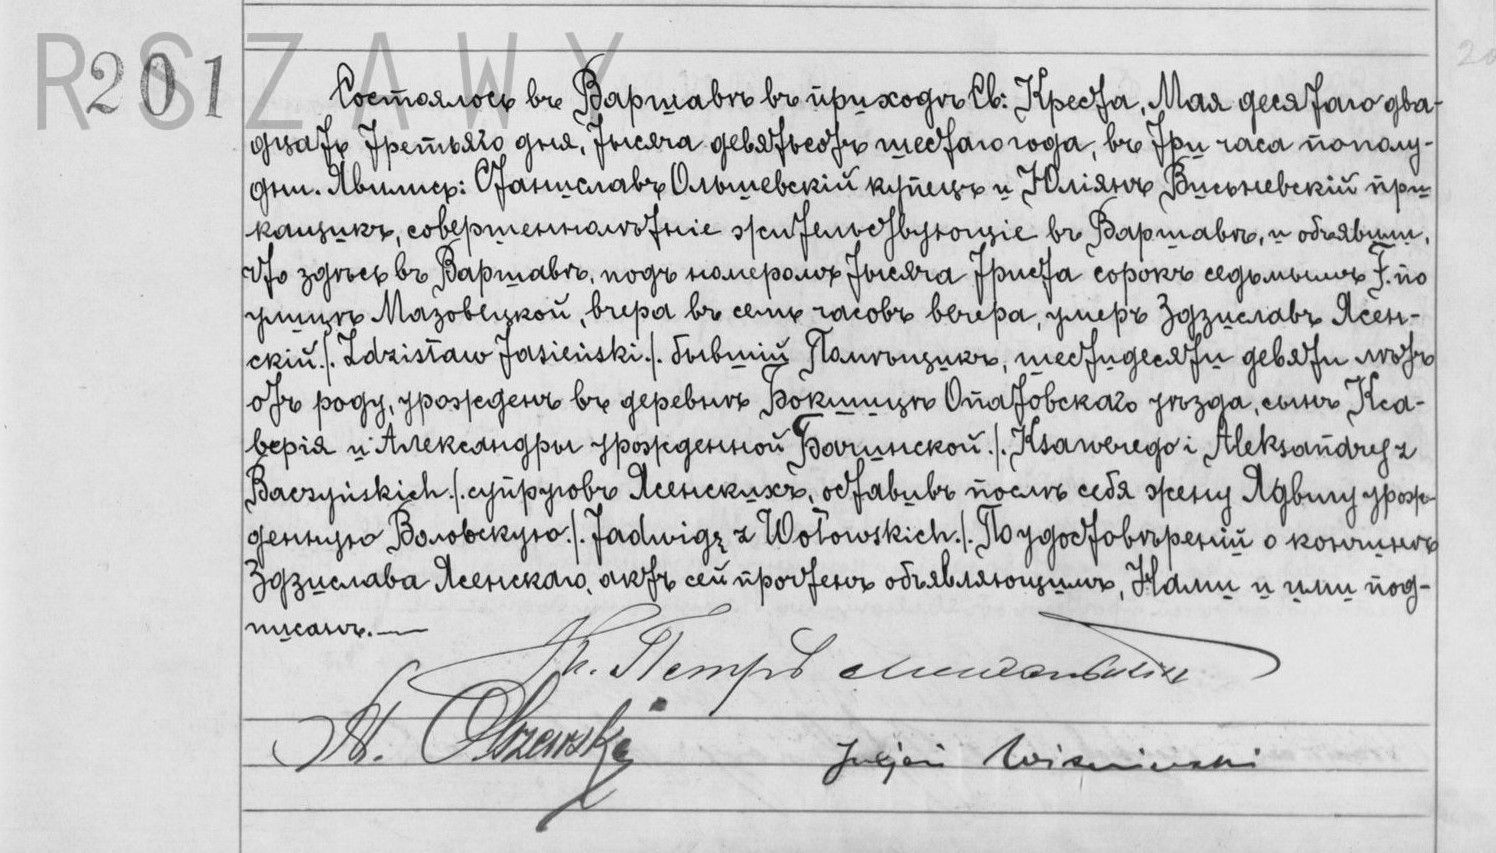 RSZAWY
201
Состоялось въ Варшавѣ въ приходѣ Св: Креста, Мая десятаго два-
дцать третьяго дня, тысяча девятьсотъ шестаго года, въ три часа пополу-
дни. Явились: Станиславъ Ольшевскій купецъ и Юліянъ Висьневскій при
кащикъ, совершеннолѣтніе жительствующіе въ Варшавѣ, и объявили,
что здѣсь въ Варшавѣ, подъ номеромъ тысяча триста сорокъ седьмымъ F. по
улицѣ Мазовецкой, вчера въ семь часовъ вечера, умеръ Здзиславъ Ясен-
скій ./. Zdzisław Jasieński ./. бывшій Помѣщикъ, шестидесяти девяти лѣтъ
отъ роду, урожденъ въ деревнѣ Бокшицѣ Опатовскаго уѣзда, сынъ Кса-
верія и Александры урожденной Бачинской ./. Ksawerego i Aleksandry z
Baczyńskich ./. супруговъ Ясенскихъ, оставивъ послѣ себя жену Ядвигу урож-
денную Воловскую ./. Jadwigę z Wołowskich ./. По удостовѣреніи о кончинѣ
Здзислава Ясенскаго, актъ сей прочтенъ объявляющимъ, Нами и ими под-
писанъ.—
Кс. Петръ
St. Olszewski
Juljan Wiśniewski